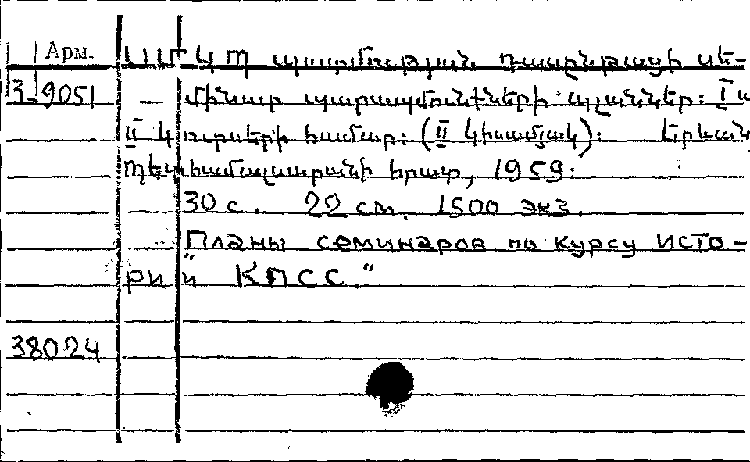 Арм. ՍՄԿՊ պատմության դասընթացի սե-
3-9051 — մինար պարապմունքների պլաններ: I և
II կուրսերի համար: (II կիսամյակ): Երևան
Պետ. համալսարանի հրատ, 1959:
30 с. 20 см. 1500 экз.
Планы семинаров по курсу "исто-
рии КПСС."
38024